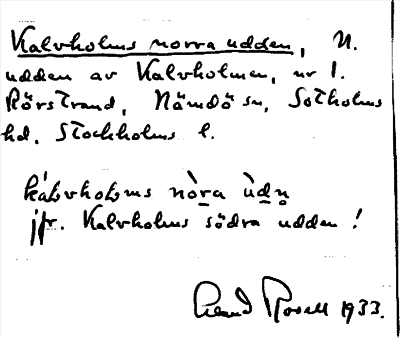 Kalvholms norra udden, N.
udden av Kalvholmen, nr 1.
Rörstrand, Nämdö sn, Sotholms
hd, Stockholms l.
kálvhoḷms nòra ùdn̥
jfr. Kalvholms södra udden!
Rosell 1933.